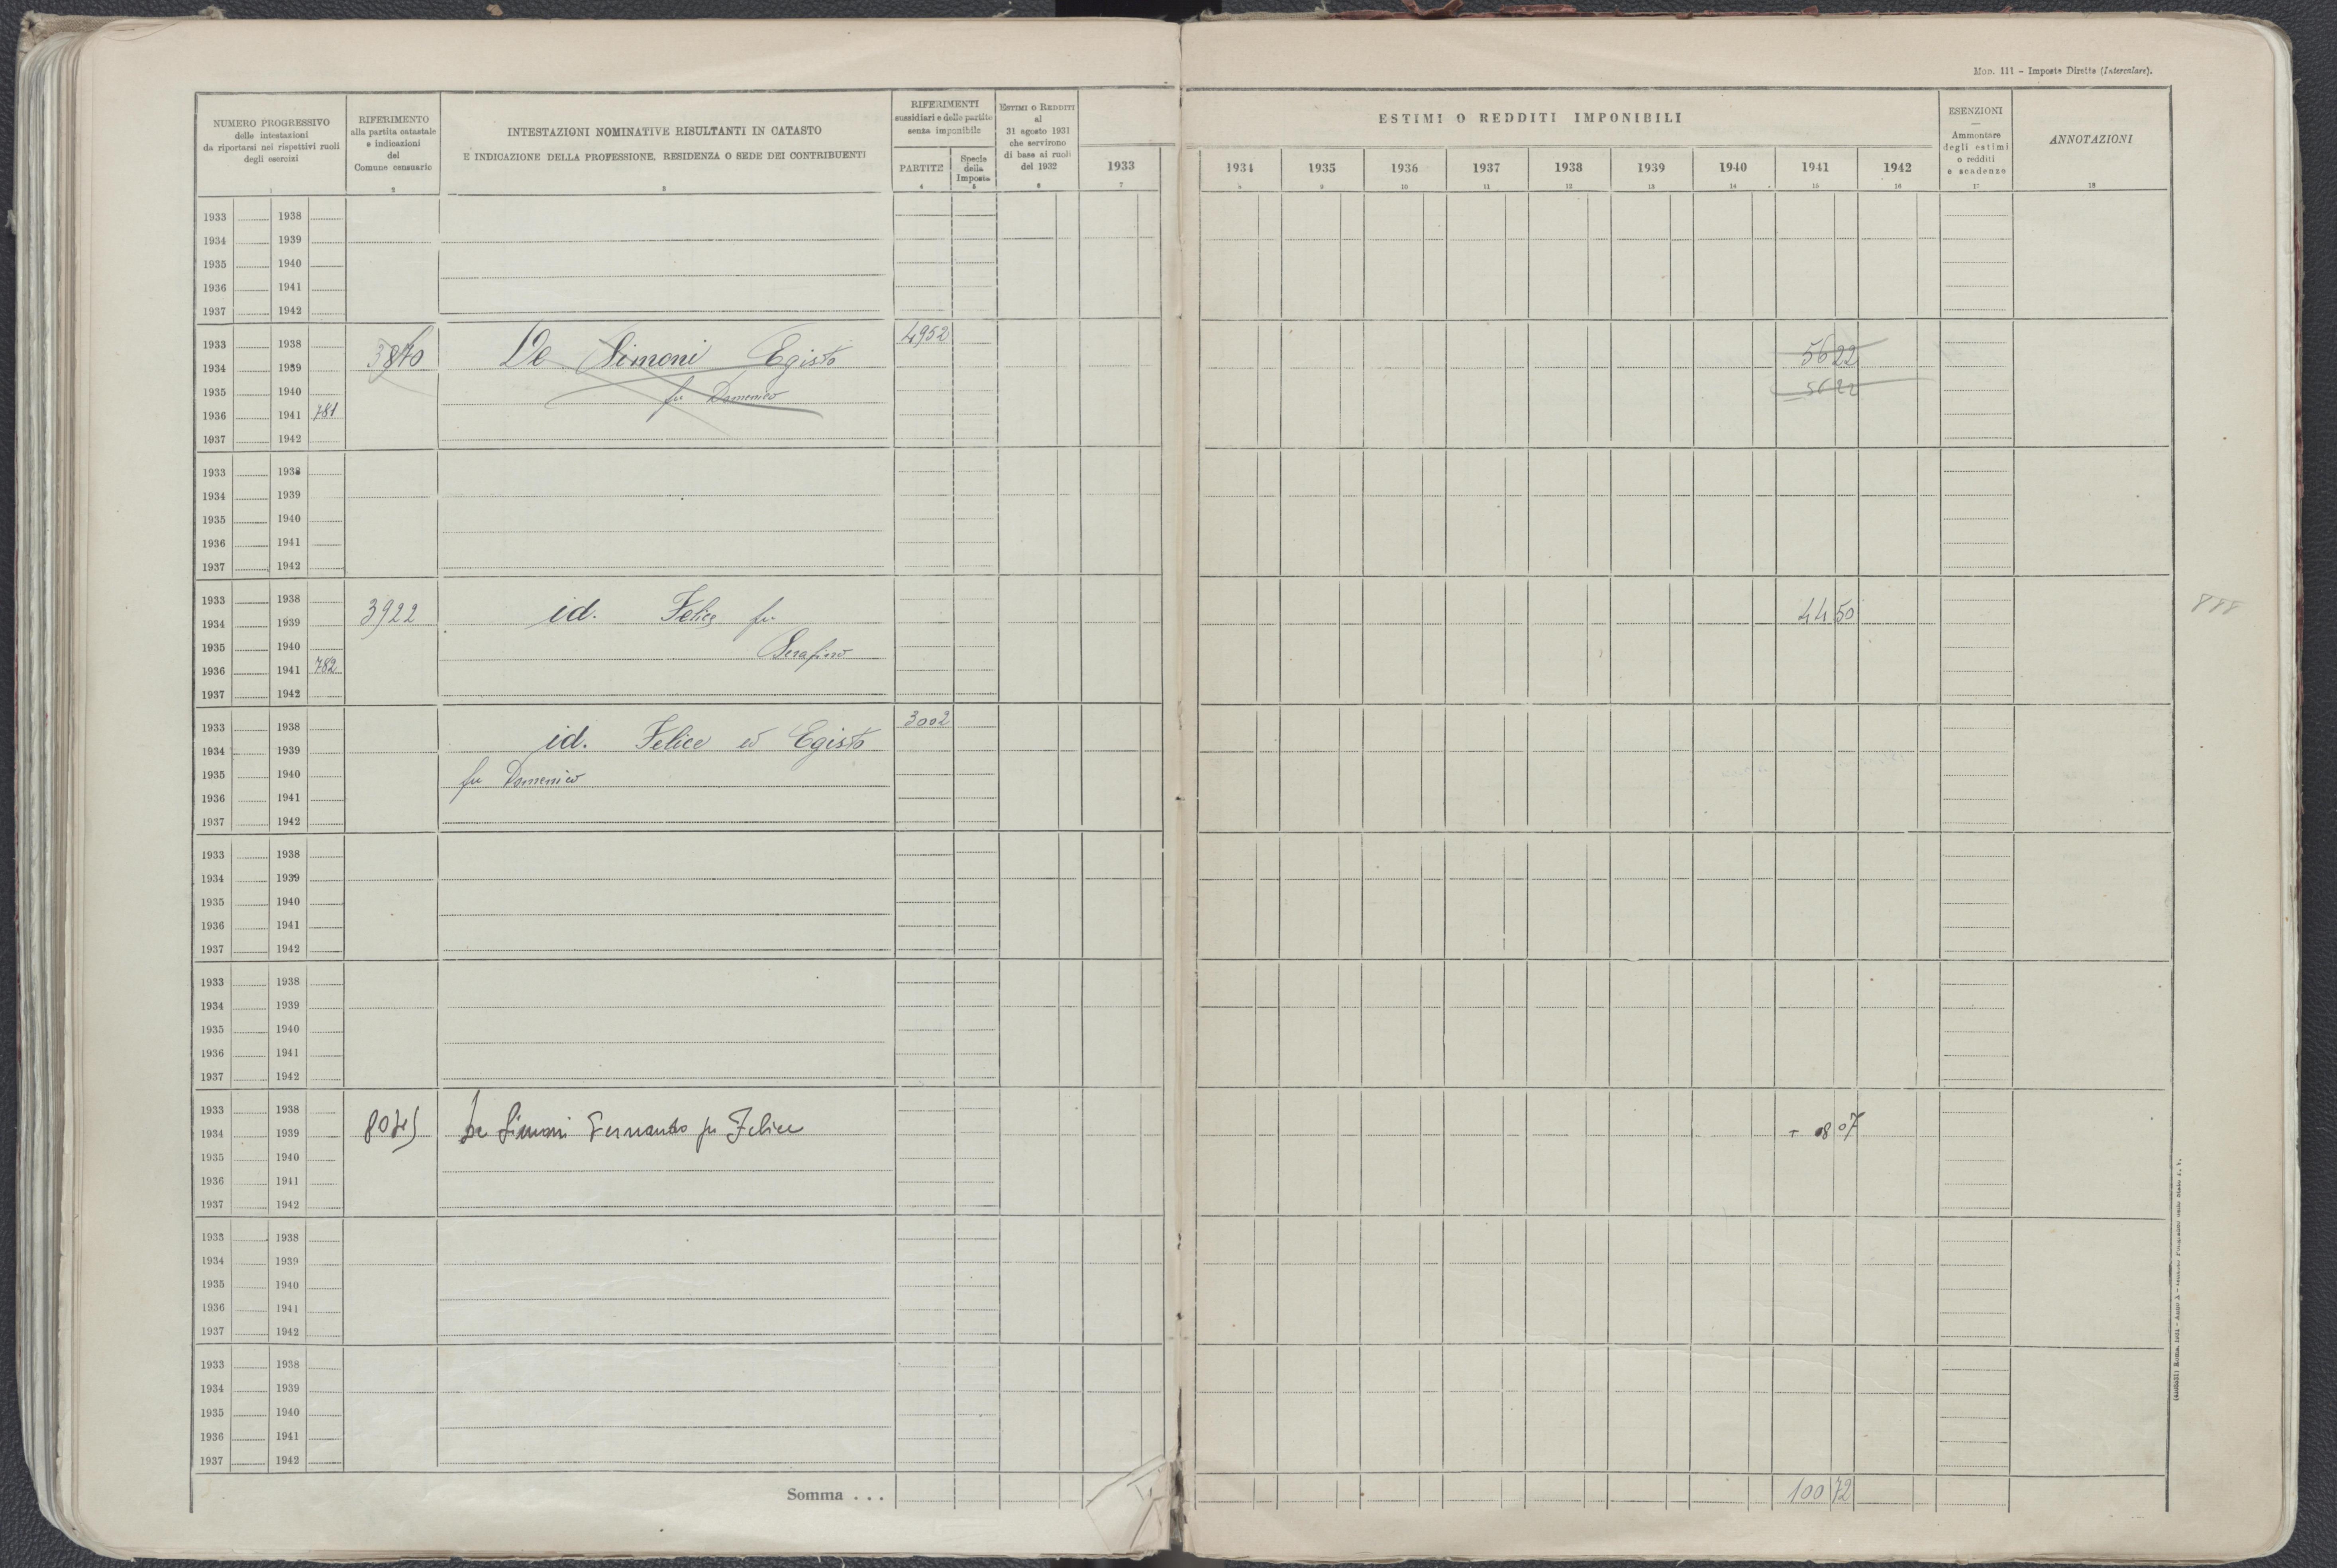 Mod. 111 - Imposte Dirette (Intercalare).
NUMERO PROGRESSIVO
delle intestazioni
da riportarsi nei rispettivi ruoli
degli esercizi
1
RIFERIMENTO
alla partita catastale
e indicazioni
del
Comune censuario
2
INTESTAZIONI NOMINATIVE RISULTANTI IN CATASTO
E INDICAZIONE DELLA PROFESSIONE, RESIDENZA O SEDE DEI CONTRIBUENTI
3
RIFERIMENTI
sussidiari e delle partite
senza imponibile
PARTITE
4
Specie
della
Imposta
5
ESTIMI O REDDITI
al
31 agosto 1931
che servirono
di base ai ruoli
del 1932
6
ESTIMI O REDDITI IMPONIBILI
1933 1934 1935 1936 1937 1938 1939 1940 1941 1942
7 8 9 10 11 12 13 14 15 16
ESENZIONI
Ammontare
degli estimi
o redditi
e scadenze
17
ANNOTAZIONI
18
1933 1938
1934 1939
1935 1940
1936 1941
1937 1942
1933 1938 4952
1934 1939 3840 De Simoni Egisto 5622
1935 1940 fu Domenico 5622
1936 1941 781
1937 1942
1933 1938
1934 1939
1935 1940
1936 1941
1937 1942
1933 1938
1934 1939 3922 id. Felice fu 4450 888
1935 1940 Serafino
1936 1941 782
1937 1942
1933 1938 3002
1934 1939 id. Felice ed Egisto
1935 1940 fu Domenico
1936 1941
1937 1942
1933 1938
1934 1939
1935 1940
1936 1941
1937 1942
1933 1938
1934 1939
1935 1940
1936 1941
1937 1942
1933 1938
1934 1939 De Simoni Fernando fu Felice + 08 07
1935 1940
1936 1941
1937 1942
1933 1938
1934 1939
1935 1940
1936 1941
1937 1942
1933 1938
1934 1939
1935 1940
1936 1941
1937 1942
Somma . . . 100 72